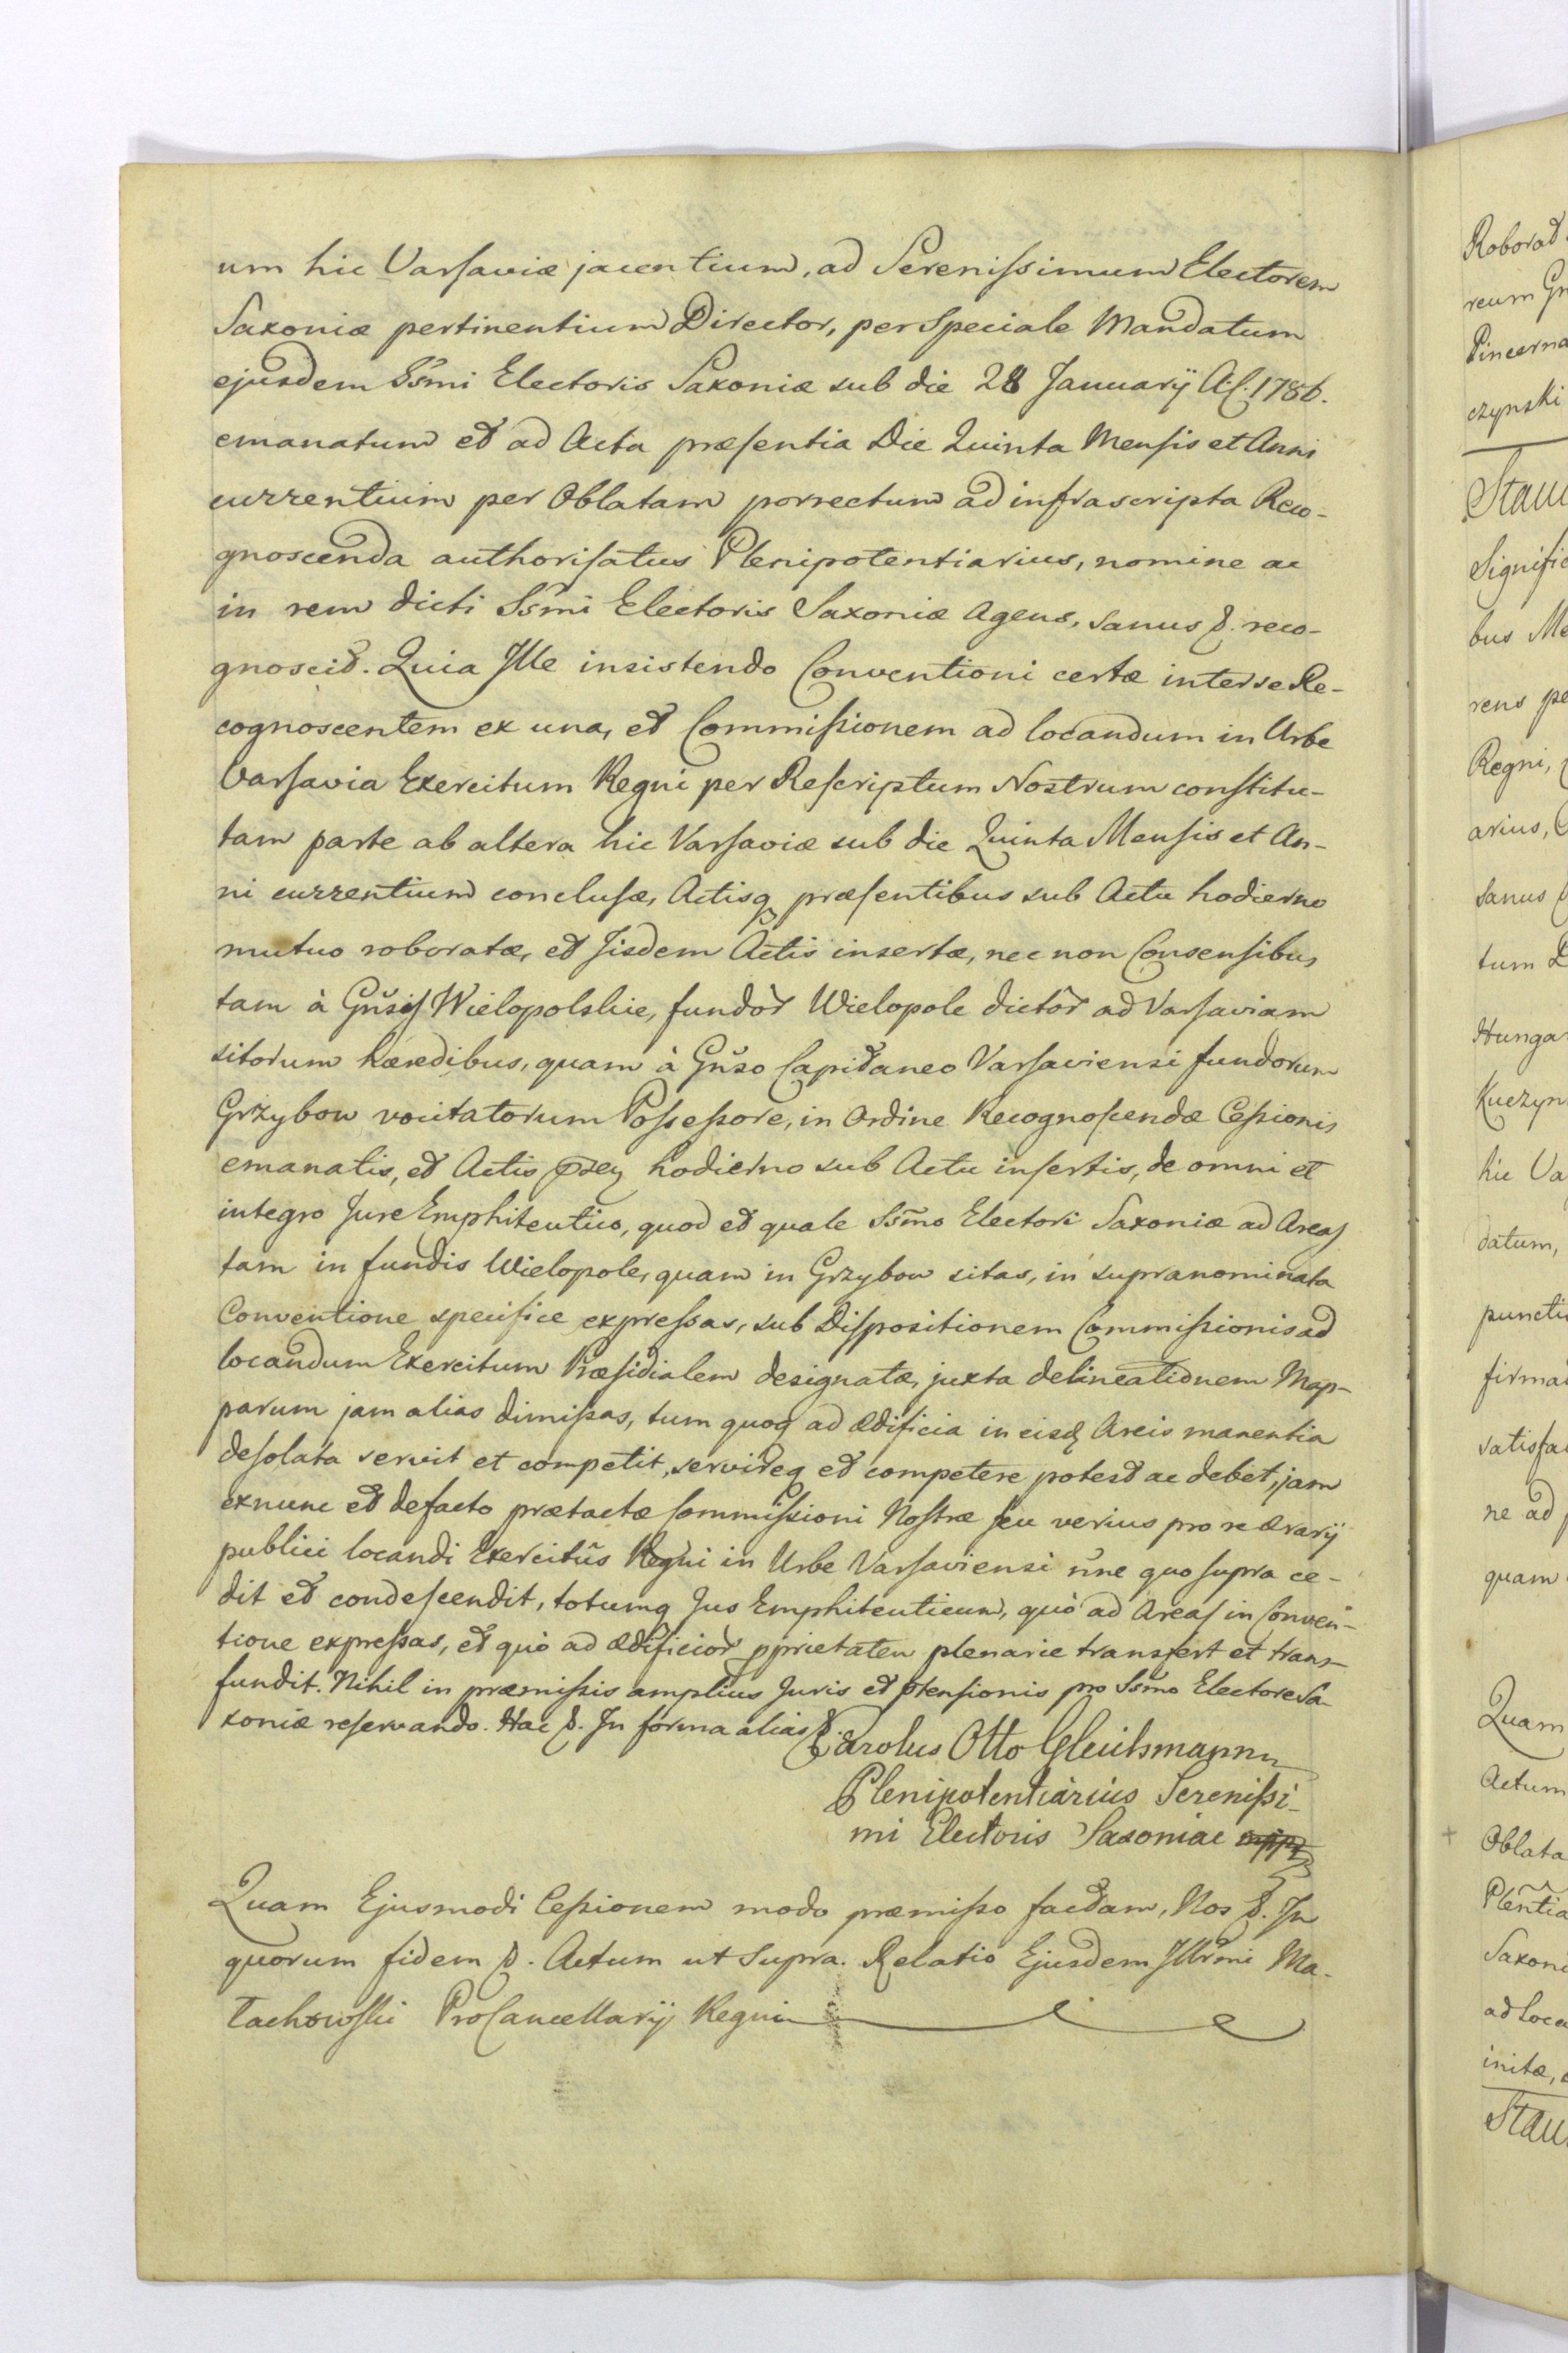 um hic Varsaviæ jacentium, ad Serenissimum Electorem
Saxoniæ pertinentium Director, per Speciale Mandatum
ejusdem Ssmi Electoris Saxoniæ sub die 28 Januarij A.C. 1786.
emanatum et ad Acta præsentia Die Quinta Mensis et Anni
currentium per Oblatam porrectum ad infrascripta Reco-
gnoscenda authorisatus Plenipotentiarius, nomine ac
in rem dicti Ssmi Electoris Saxoniæ Agens, sanus &. reco-
gnoscit. Quia Ille insistendo Conventioni certæ inter se Re-
cognoscentem ex una, et Commissionem ad locandum in Urbe
Varsavia Exercitum Regni per Rescriptum Nostrum constitu-
tam parte ab altera hic Varsaviæ sub die Quinta Mensis et An-
ni currentium conclusæ, Actisq præsentibus sub Actu hodierno
mutuo roboratæ, et Iisdem Actis insertæ, nec non Consensibus
tam à Gñsis Wielopolskie, fundor Wielopole dictor ad Varsaviam
sitorum hæredibus, quam à Gñso Capitaneo Varsaviensi fundorum
Grzybow vocitatorum Possessore, in Ordine Recognoscendæ Cessionis
emanatis, et Actis hodierno sub Actu insertis, de omni et
integro Jure Emphiteutico, quod et quale Ssmo Electori Saxoniæ ad Areas
tam in fundis Wielopole, quam in Grzybow sitas, in supranominata
Conventione specifice expressas, sub Dispositionem Commissionis ad
locandum Exercitum Præsidialem designatæ, juxta delineationem Map-
parum jam alias dimissas, tum quoq ad Ædificia in eisd Areis manentia
desolata servit et competit, servireq et competere potest ac debet, jam
exnunc et defacto prætactæ Commissioni Nostræ seu verius pro re Ærarij
publici locandi Exercitûs Regni in Urbe Varsaviensi ñne quo supra ce-
dit et condescendit, totumq Jus Emphiteuticum, quò ad Areas in Conven-
tione expressas, et quò ad Ædificior pprietatem plenarie transfert et trans-
fundit. Nihil in præmissis amplius Juris et ptensionis pro Ssmo Electore Sa-
xoniæ reservando. Hac &. In forma alias &.
Carolus Otto Gleichsmann
Plenipotentiarius Serenissi-
mi Electoris Saxoniae mpp
Quam Ejusmodi Cessionem modo præmisso factam, Nos &. In
quorum fidem &. Actum ut Supra. Relatio Ejusdem Illrmi Ma-
łachowski ProCancellarij Regni
Roborat
reum
Pincerna
czynski
Stani
Signific
bus Me
rens pe
Regni,
arius,
sanus
tum D
Hunga
Kuczyn
hic Va
datum,
puncti
firma
satisfa
ne ad
quam
Quam
Actum
Oblata
Plentia
Saxoni
ad Loca
initæ,
Stani